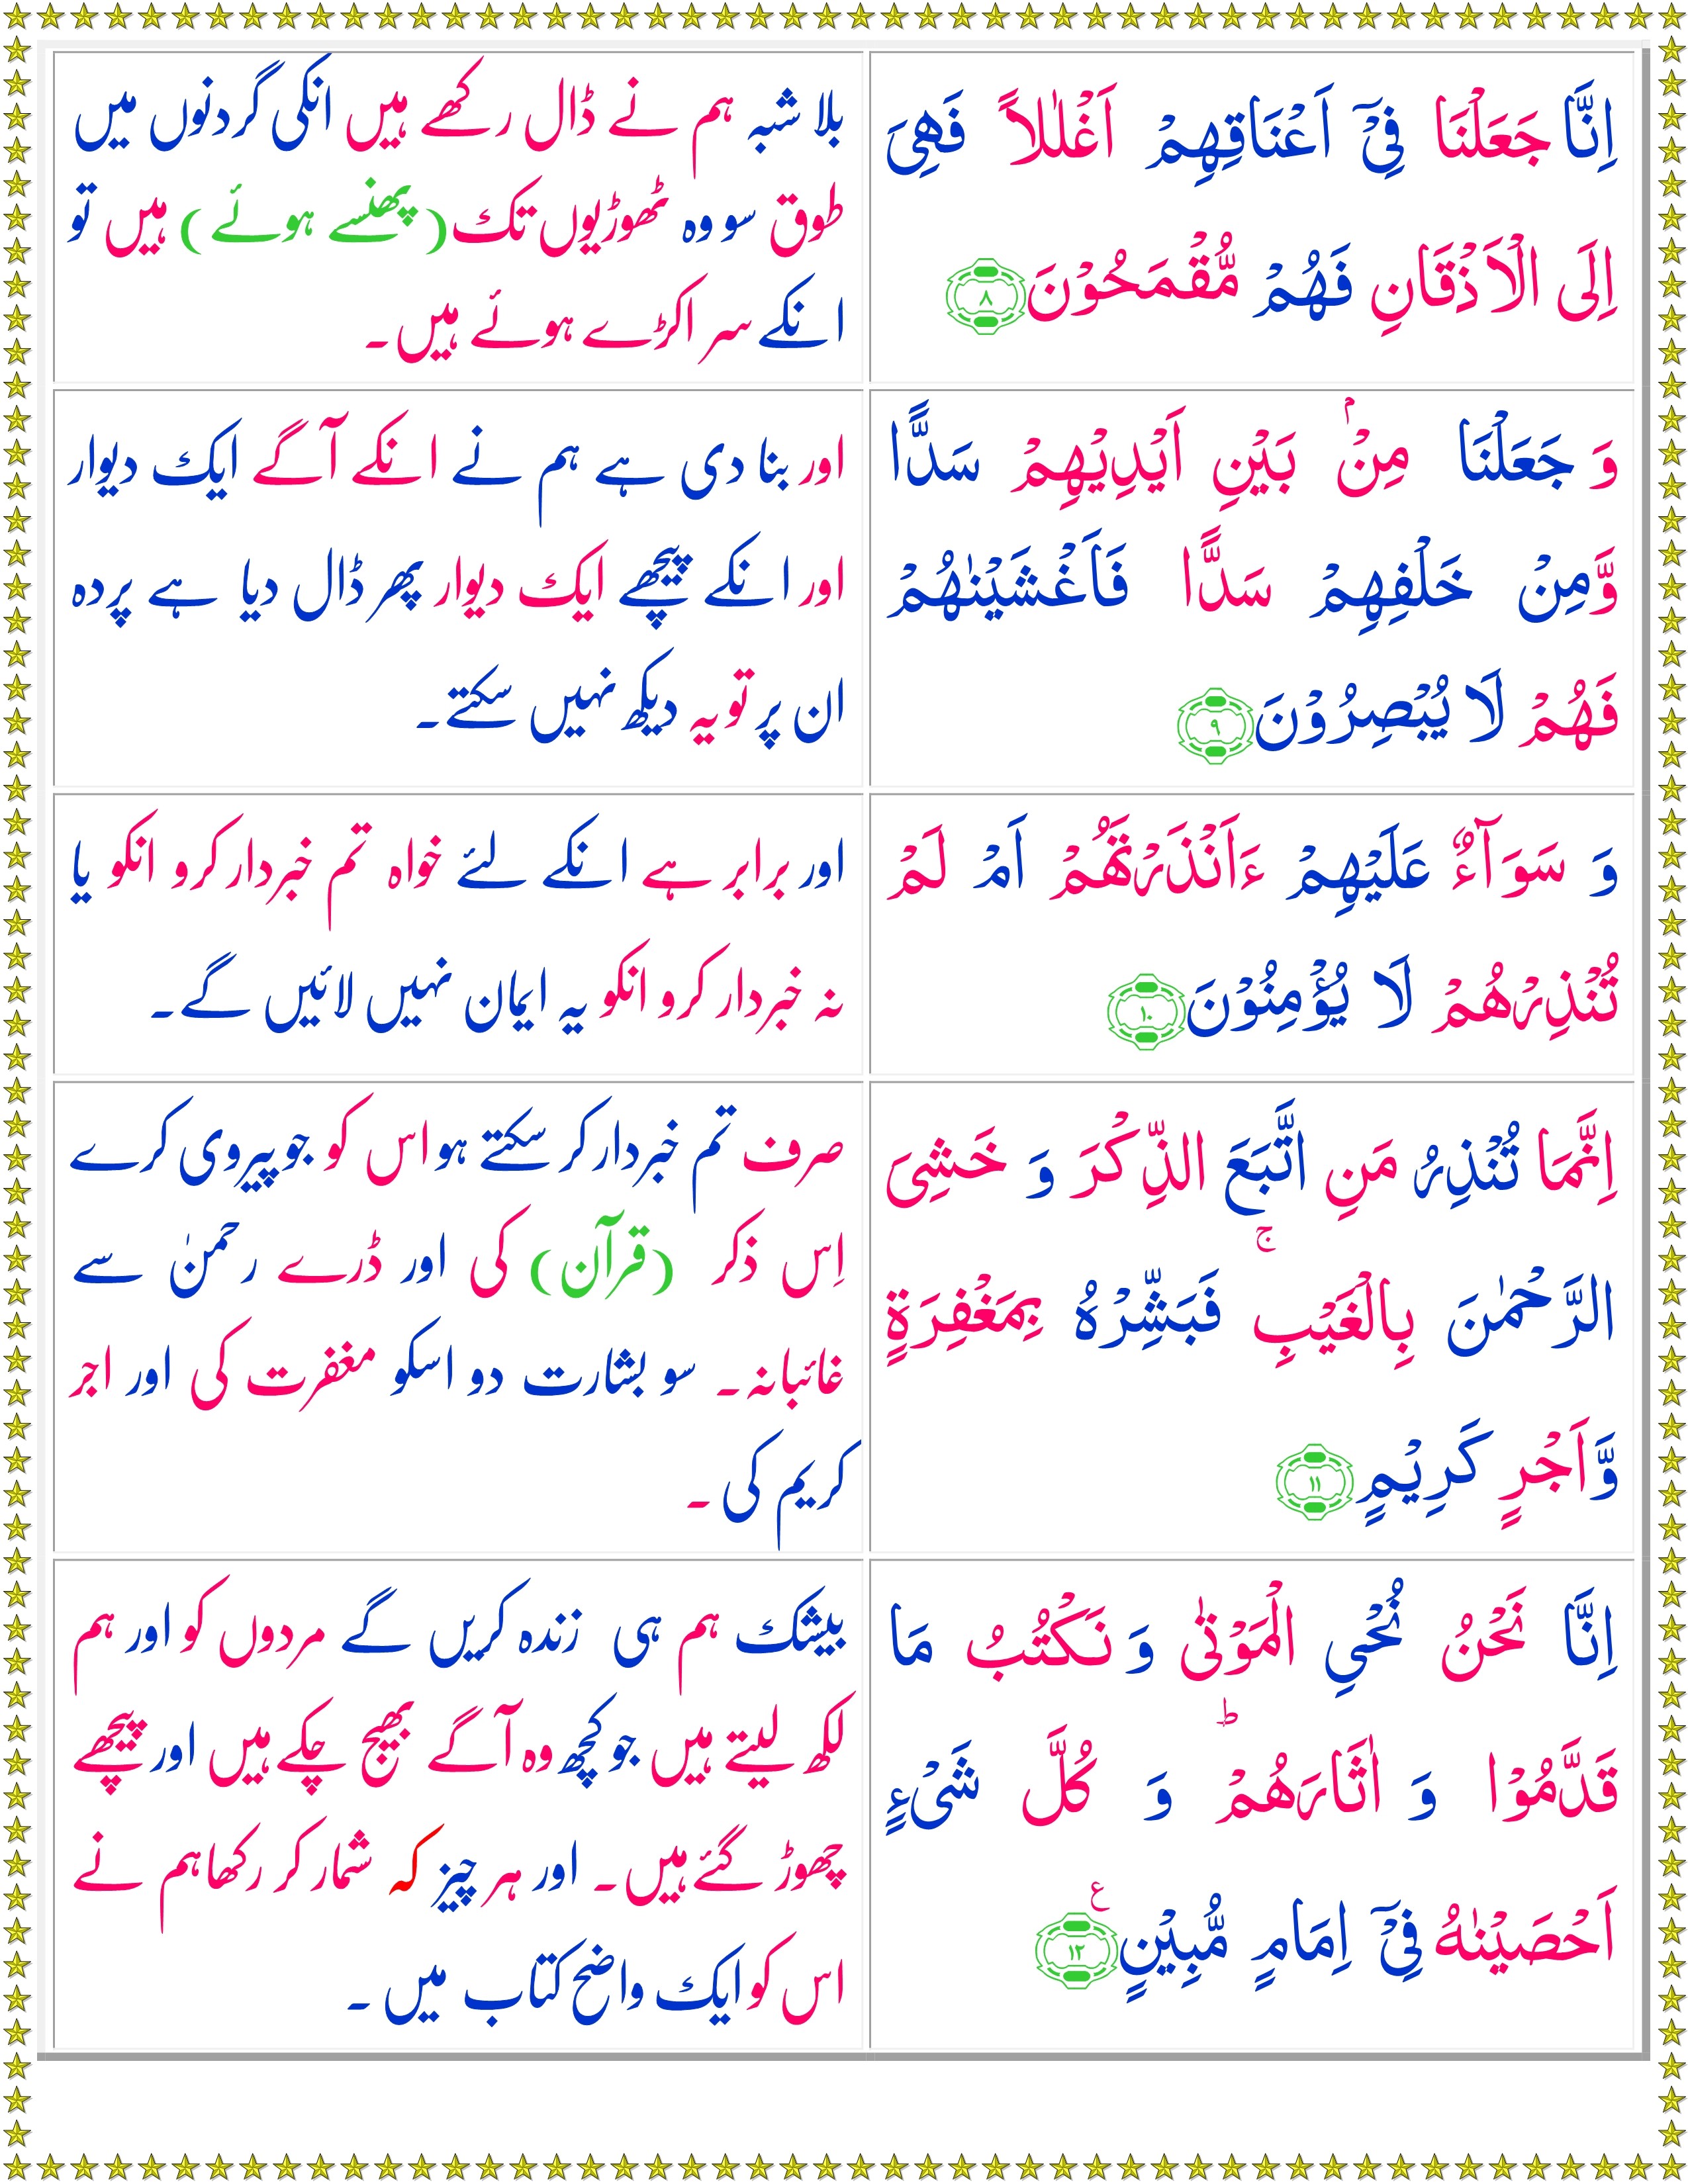 اِنَّا جَعَلْنَا فِیْۤ اَعْنَاقِهِمْ اَغْلٰلاً فَهِیَ
اِلَی الْاَذْقَانِ فَهُمْ مُّقْمَحُوْنَ ۸
بلا شبہ ہم نے ڈال رکھے ہیں انکی گردنوں میں
طوق سو وہ ٹھوڑیوں تک (پھنسے ہوئے) ہیں تو
انکے سر اکڑے ہوئے ہیں۔
وَ جَعَلْنَا مِنْۢ بَیْنِ اَیْدِیْهِمْ سَدًّا
وَّمِنْ خَلْفِهِمْ سَدًّا فَاَغْشَیْنٰهُمْ
فَهُمْ لَا یُبْصِرُوْنَ ۹
اور بنا دی ہے ہم نے انکے آگے ایک دیوار
اور انکے پیچھے ایک دیوار پھر ڈال دیا ہے پردہ
ان پر تو یہ دیکھ نہیں سکتے۔
وَ سَوَآءٌ عَلَیْهِمْ ءَاَنْذَرْتَهُمْ اَمْ لَمْ
تُنْذِرْهُمْ لَا یُؤْمِنُوْنَ ۱۰
اور برابر ہے انکے لئے خواہ تم خبردار کرو انکو یا
نہ خبردار کرو انکو یہ ایمان نہیں لائیں گے۔
اِنَّمَا تُنْذِرُ مَنِ اتَّبَعَ الذِّكْرَ وَ خَشِیَ
الرَّحْمٰنَ بِالْغَیْبِ ۚ فَبَشِّرْهُ بِمَغْفِرَةٍ
وَّاَجْرٍ كَرِیْمٍ ۱۱
صرف تم خبردار کر سکتے ہو اس کو جو پیروی کرے
اِس ذکر (قرآن) کی اور ڈرے رحمنٰ سے
غائبانہ۔ سو بشارت دو اسکو مغفرت کی اور اجر
کریم کی۔
اِنَّا نَحْنُ نُحْیِ الْمَوْتٰی وَ نَكْتُبُ مَا
قَدَّمُوْا وَ اٰثَارَهُمْ ؕ وَ كُلَّ شَیْءٍ
اَحْصَیْنٰهُ فِیْۤ اِمَامٍ مُّبِیْنٍ ۱۲ ع
بیشک ہم ہی زندہ کریں گے مردوں کو اور ہم
لکھ لیتے ہیں جو کچھ وہ آگے بھیج چکے ہیں اور پیچھے
چھوڑ گئے ہیں۔ اور ہر چیز کہ شمار کر رکھا ہم نے
اس کو ایک واضح کتاب میں۔